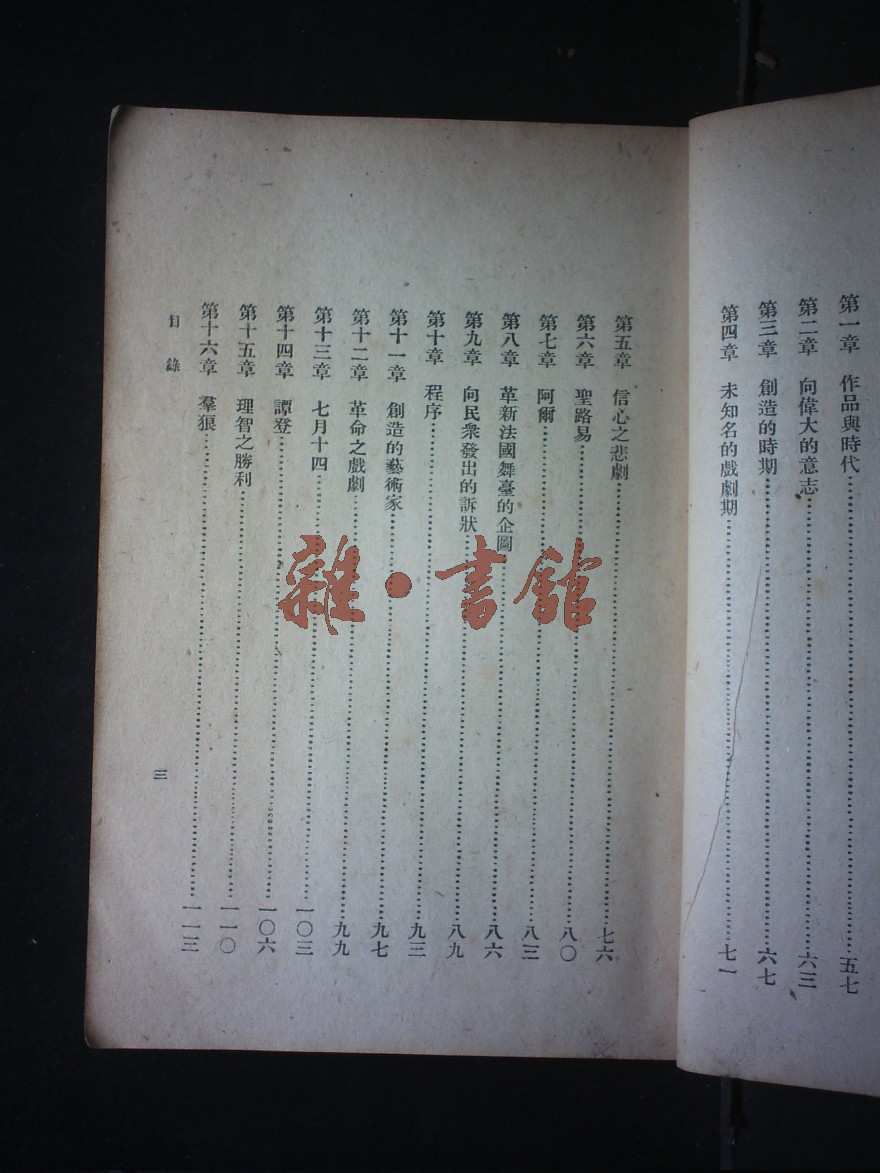 第一章　作品與時代……五七
第二章　向偉大的意志……六三
第三章　創造的時期……六七
第四章　未知名的戲劇期……七一
第五章　信心之悲劇……七六
第六章　聖路易……八〇
第七章　阿爾……八三
第八章　革新法國舞臺的企圖……八六
第九章　向民衆發出的訴狀……八九
第十章　程序……九三
第十一章　創造的藝術家……九七
第十二章　革命之戲劇……九九
第十三章　七月十四……一〇三
第十四章　譚登……一〇六
第十五章　理智之勝利……一一〇
第十六章　羣狼……一一三
目錄
三
雜·書館